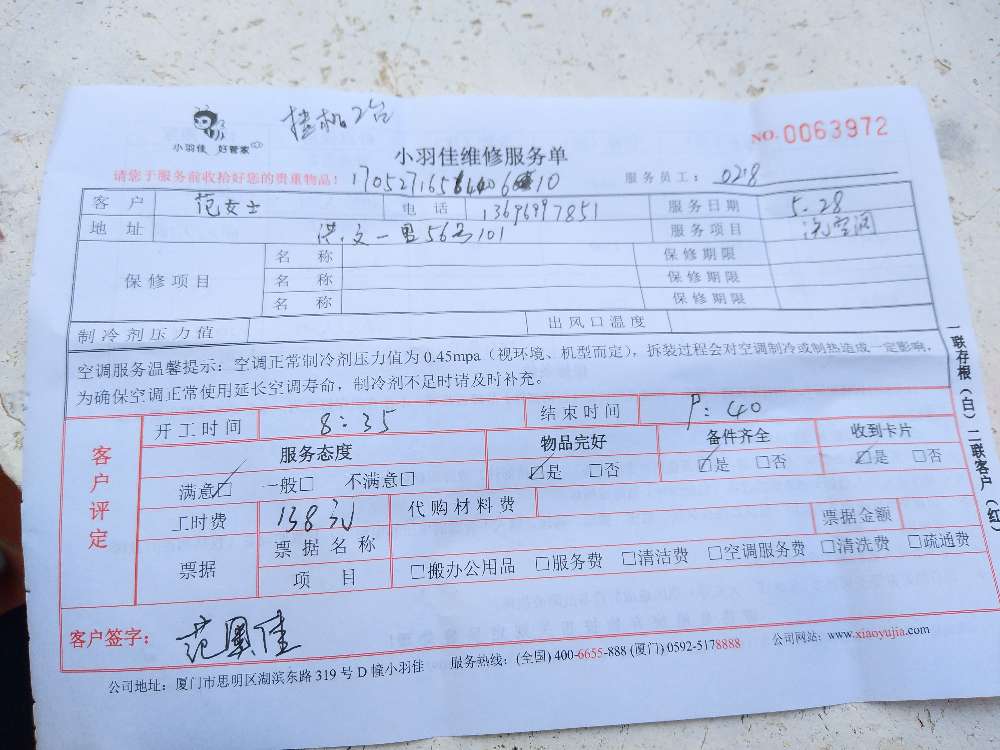 挂机2台
NO.0063972
小羽佳 好管家
小羽佳维修服务单
请您于服务前收拾好您的贵重物品! 服务员工: 028
客户 范女士 电话 13696997851 服务日期 5.28
地址 洪文一里56号101 服务项目 洗空调
保修项目 名称 保修期限
名称 保修期限
名称 保修期限
制冷剂压力值 出风口温度
空调服务温馨提示:空调正常制冷剂压力值为 0.45mpa(视环境、机型而定),拆装过程会对空调制冷或制热造成一定影响,
为确保空调正常使用延长空调寿命,制冷剂不足时请及时补充。
客户评定
开工时间 8:35 结束时间 9:40
服务态度 物品完好 备件齐全 收到卡片
满意☑ 一般□ 不满意□ ☑是 □否 ☑是 □否 ☑是 □否
工时费 138元 代购材料费
票据 票据名称 票据金额
项目 □搬办公用品 □服务费 □清洁费 □空调服务费 □清洗费 □疏通费
客户签字:
公司地址:厦门市思明区湖滨东路 319 号 D 幢小羽佳 服务热线:(全国) 400-6655-888 (厦门) 0592-5178888 公司网站:www.xiaoyujia.com
一联存根(白)二联客户(红)